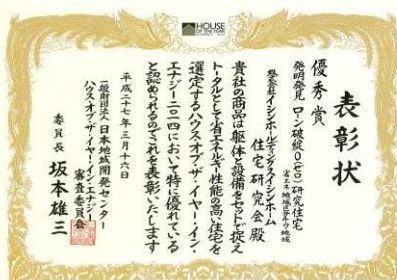 HOUSE
OF THE YEAR
表彰状
優秀賞
発明発見 ローン破綻0(ゼロ)研究住宅
株式会社イシンホールディングスイシンホーム
住宅研究会殿
貴社の商品は躯体と設備をセットで捉え
トータルとして省エネルギー性能の高い住宅を
選定するハウス・オブ・ザ・イヤー・イン・
エナジー二〇一四において特に優れている
と認められるのでこれを表彰いたします
平成二十七年三月十六日
一般財団法人 日本地域開発センター
ハウス・オブ・ザ・イヤー・イン・エナジー
審査委員会
委員長 坂本雄三